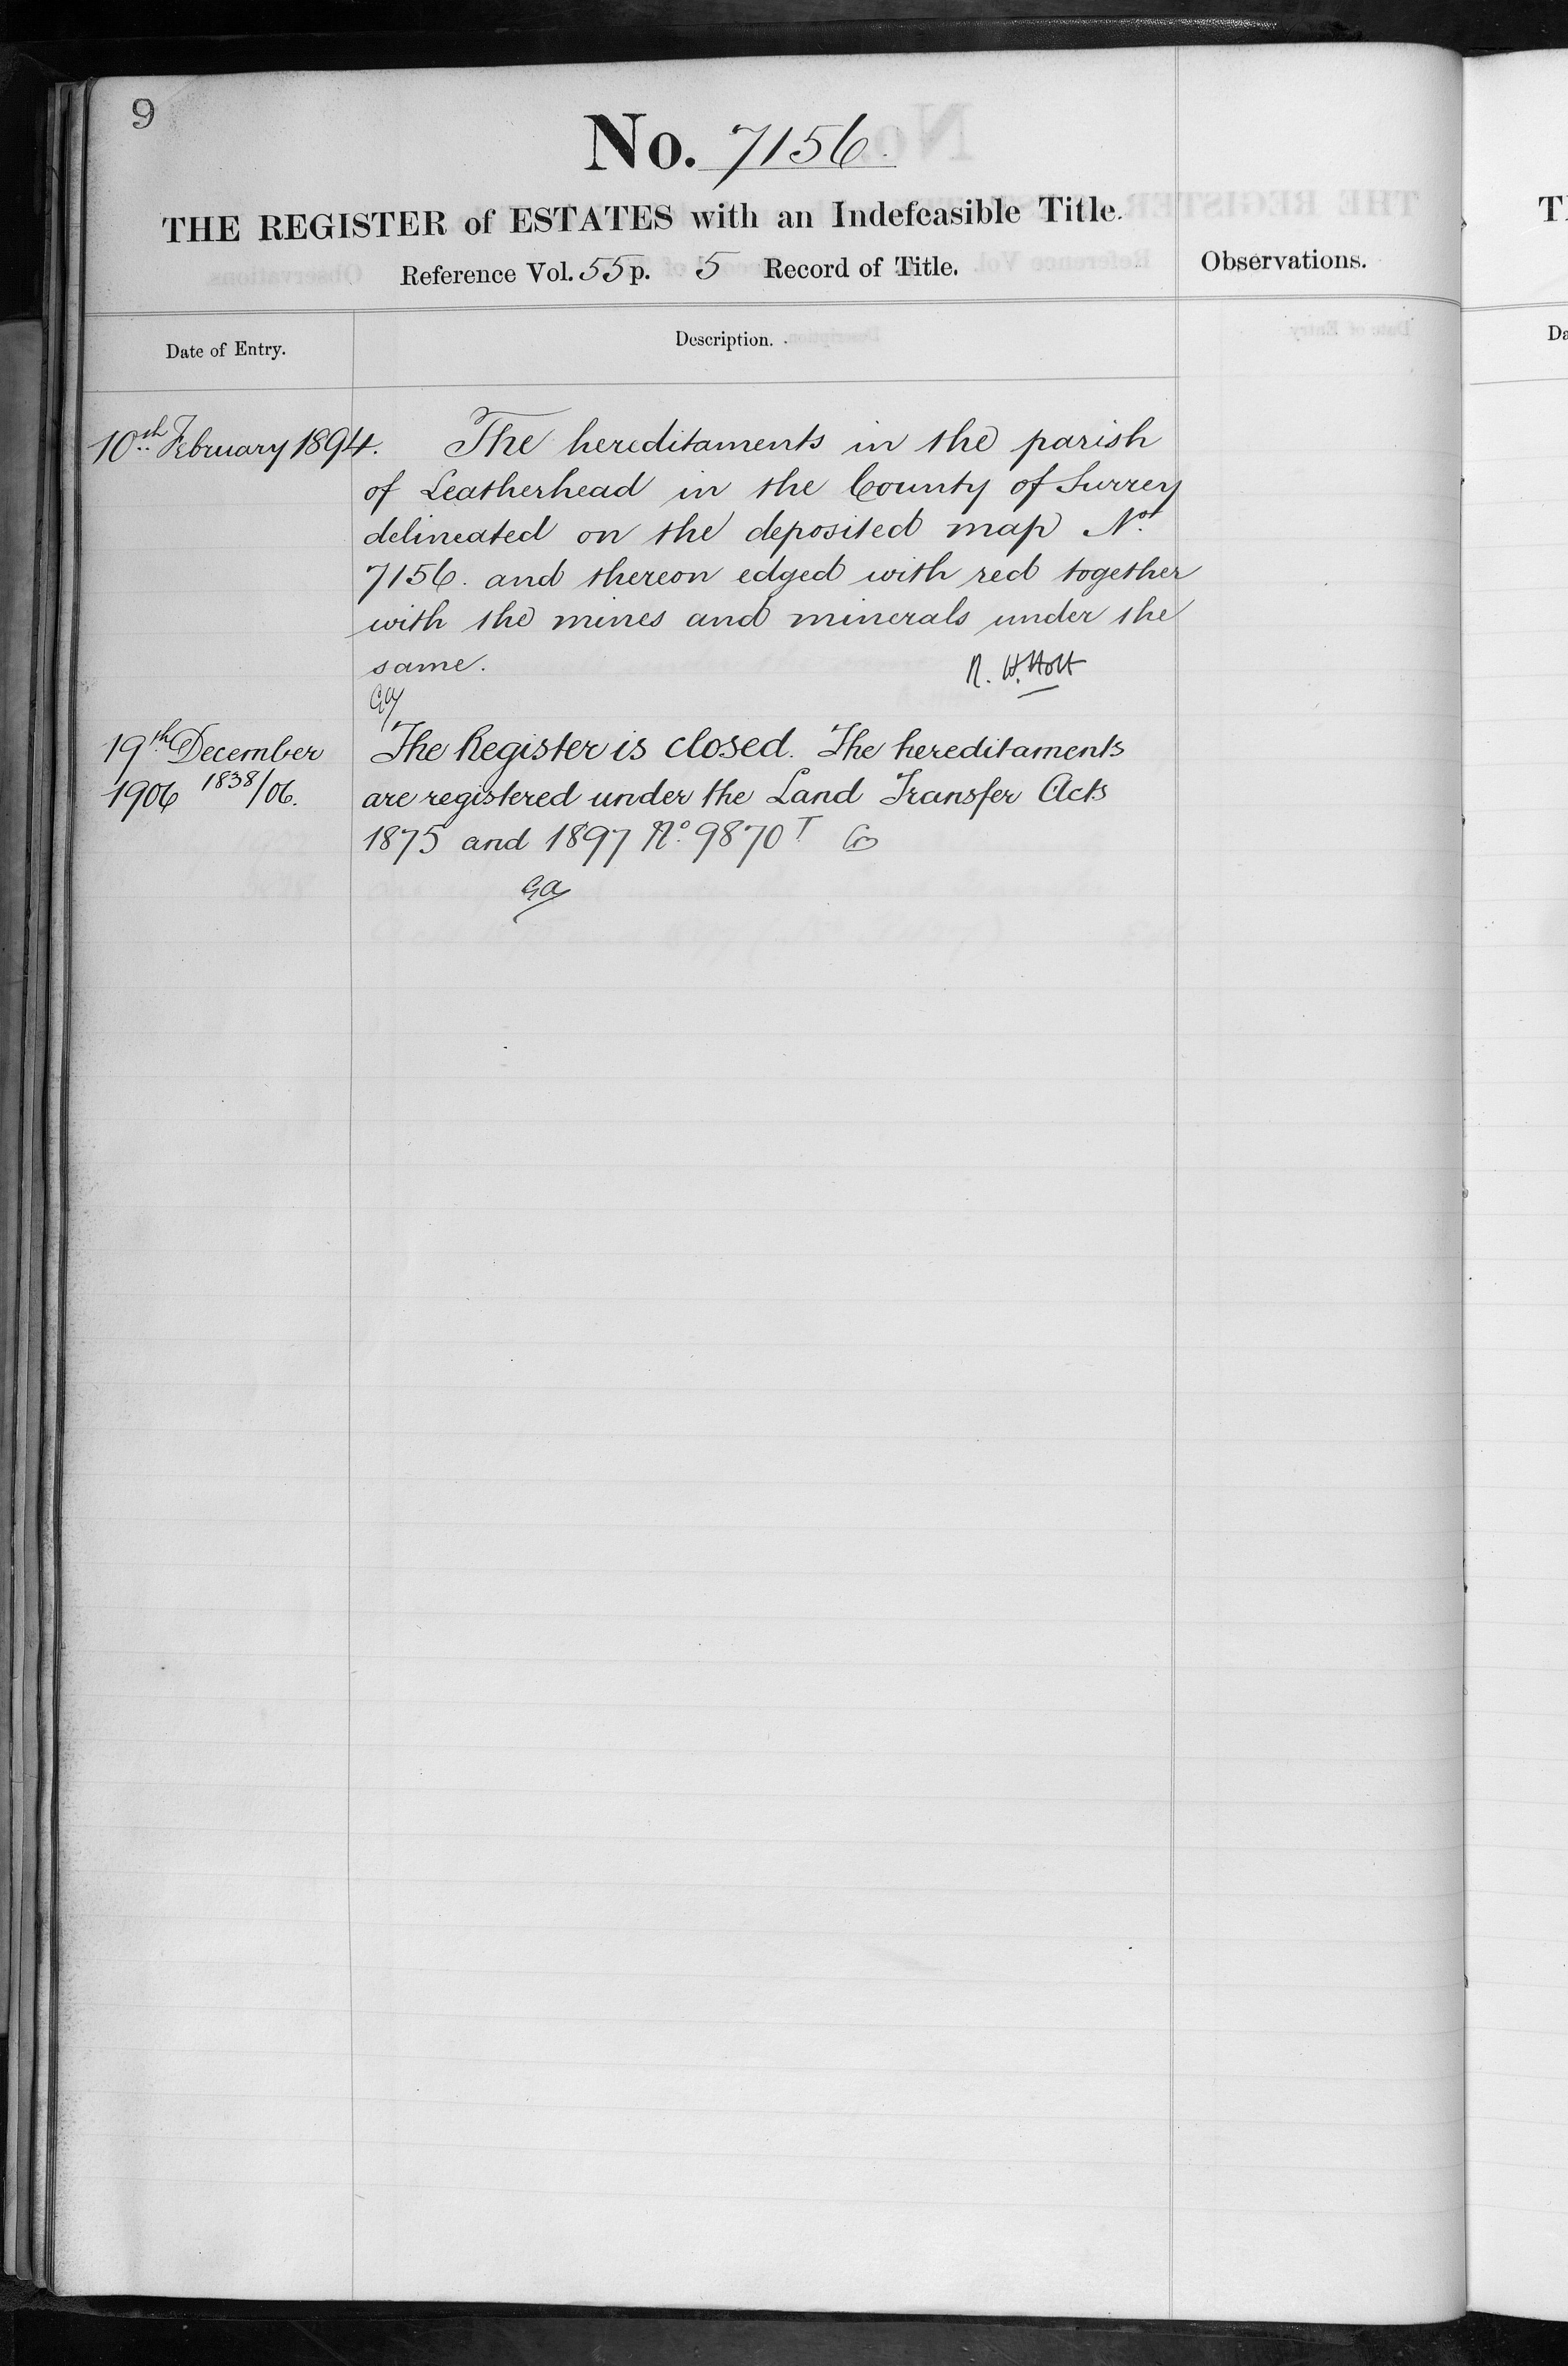 9
No. 7156.
THE REGISTER of ESTATES with an Indefeasible Title.
Reference Vol. 55 p. 5 Record of Title.
Observations.
Date of Entry.
Description.
10th February 1894.
The hereditaments in the parish
of Leatherhead in the County of Surrey
delineated on the deposited map No.
7156. and thereon edged with red together
with the mines and minerals under the
same.
R. W. Holt
GA
19th December
1906 1838/06.
The Register is closed. The hereditaments
are registered under the Land Transfer Acts
1875 and 1897 No. 9870 T
GA